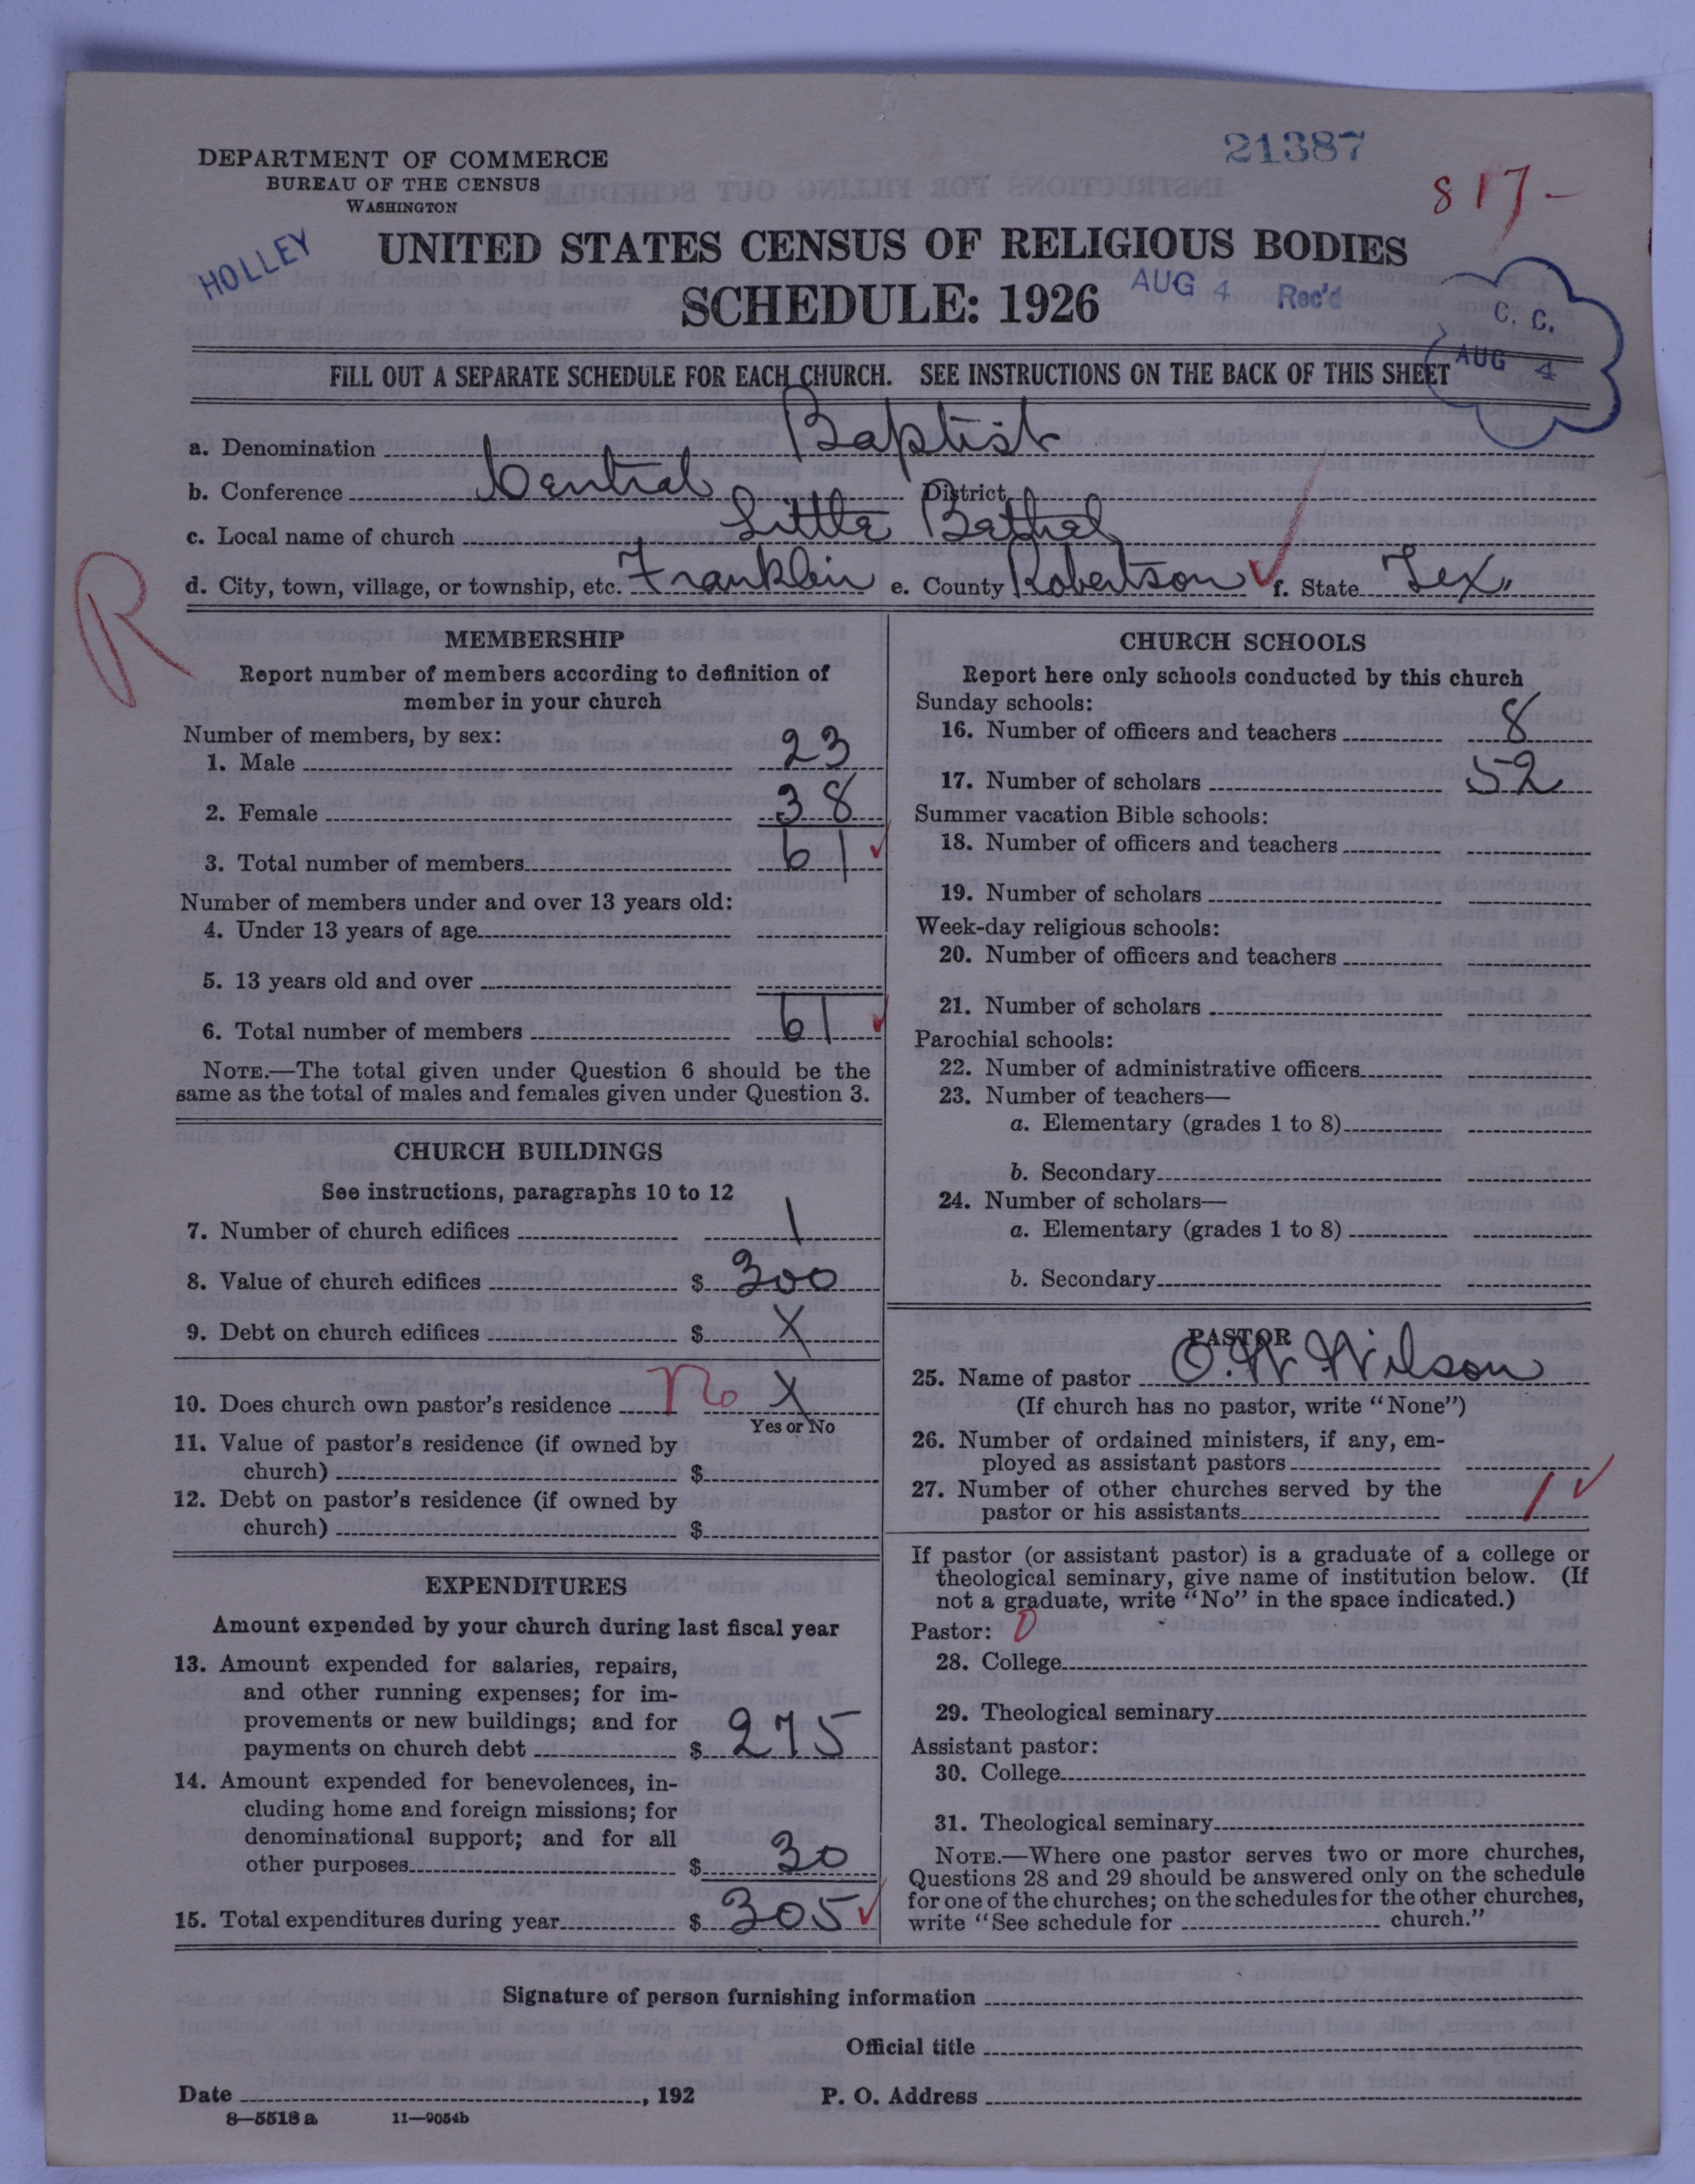 21387
817-
DEPARTMENT OF COMMERCE
BUREAU OF THE CENSUS
WASHINGTON
HOLLEY
UNITED STATES CENSUS OF RELIGIOUS BODIES
SCHEDULE: 1926
AUG 4 Rec'd
C. C.
AUG 4
FILL OUT A SEPARATE SCHEDULE FOR EACH CHURCH. SEE INSTRUCTIONS ON THE BACK OF THIS SHEET
a. Denomination Baptist
b. Conference Central District
c. Local name of church Little Bethel
d. City, town, village, or township, etc. Franklin e. County Robertson f. State Tex,,
R
MEMBERSHIP
Report number of members according to definition of
member in your church
Number of members, by sex:
1. Male 23
2. Female 38
3. Total number of members 61
Number of members under and over 13 years old:
4. Under 13 years of age
5. 13 years old and over
6. Total number of members 61
NOTE.—The total given under Question 6 should be the
same as the total of males and females given under Question 3.
CHURCH BUILDINGS
See instructions, paragraphs 10 to 12
7. Number of church edifices 1
8. Value of church edifices $ 300
9. Debt on church edifices $ X
10. Does church own pastor's residence no X
Yes or No
11. Value of pastor's residence (if owned by
church) $
12. Debt on pastor's residence (if owned by
church) $
EXPENDITURES
Amount expended by your church during last fiscal year
13. Amount expended for salaries, repairs,
and other running expenses; for im-
provements or new buildings; and for
payments on church debt $ 275
14. Amount expended for benevolences, in-
cluding home and foreign missions; for
denominational support; and for all
other purposes $ 30
15. Total expenditures during year $ 305
CHURCH SCHOOLS
Report here only schools conducted by this church
Sunday schools:
16. Number of officers and teachers 8
17. Number of scholars 52
Summer vacation Bible schools:
18. Number of officers and teachers
19. Number of scholars
Week-day religious schools:
20. Number of officers and teachers
21. Number of scholars
Parochial schools:
22. Number of administrative officers
23. Number of teachers—
a. Elementary (grades 1 to 8)
b. Secondary
24. Number of scholars—
a. Elementary (grades 1 to 8)
b. Secondary
PASTOR
25. Name of pastor O. W. Wilson
(If church has no pastor, write "None")
26. Number of ordained ministers, if any, em-
ployed as assistant pastors
27. Number of other churches served by the
pastor or his assistants 1
If pastor (or assistant pastor) is a graduate of a college or
theological seminary, give name of institution below. (If
not a graduate, write "No" in the space indicated.)
Pastor: 0
28. College
29. Theological seminary
Assistant pastor:
30. College
31. Theological seminary
NOTE.—Where one pastor serves two or more churches,
Questions 28 and 29 should be answered only on the schedule
for one of the churches; on the schedules for the other churches,
write "See schedule for church."
Signature of person furnishing information
Official title
Date , 192 P. O. Address
8—5518 a 11—9054b